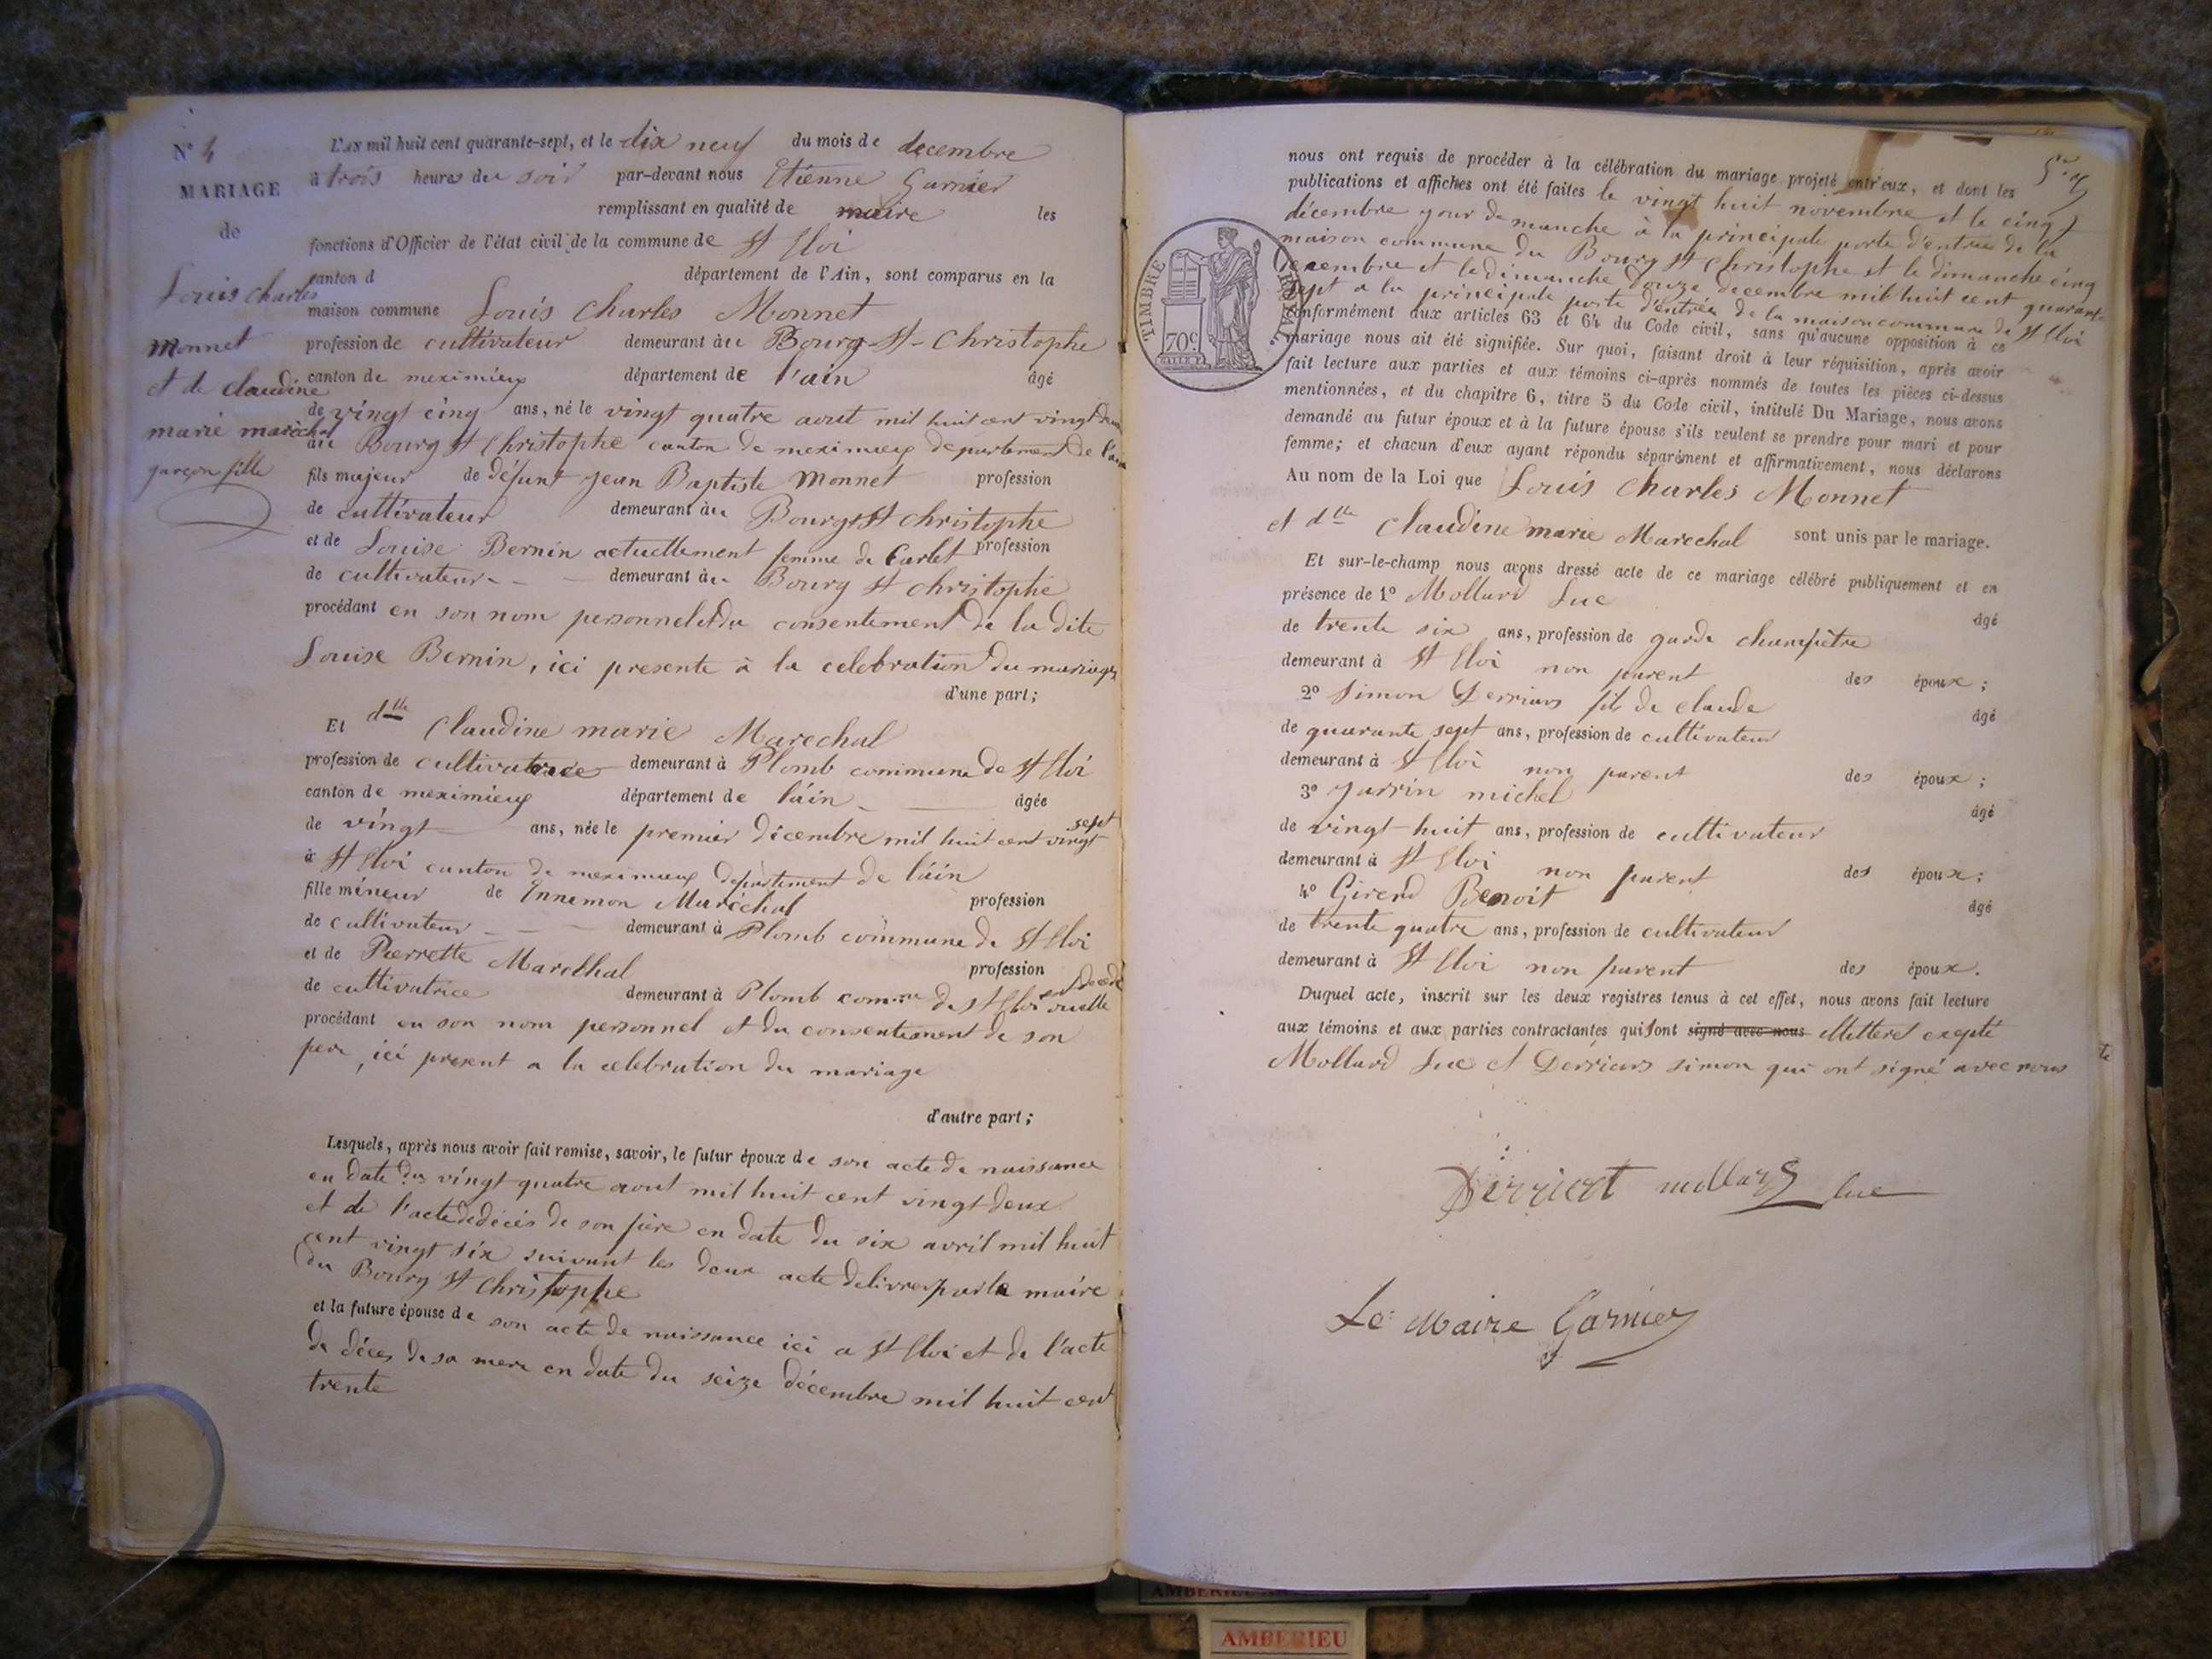 N° 4
MARIAGE
de
Louis Charles
Monnet
et de claudine
marie maréchal
garçon fille
L'AN mil huit cent quarante-sept, et le dix neuf du mois de decembre
à trois heures du soir par-devant nous Etienne Garnier
remplissant en qualité de maire les
fonctions d'Officier de l'état civil de la commune de St Eloi
canton d département de l'Ain, sont comparus en la
maison commune Louis Charles Monnet
profession de cultivateur demeurant àu Bourg-St-Christophe
canton de meximieux département de l'ain âgé
de vingt cinq ans, né le vingt quatre aout mil huit cent vingt deux
au Bourg St Christophe canton de meximieux departement de l'ain
fils majeur de défunt Jean Baptiste Monnet profession
de cultivateur demeurant àu Bourg St Christophe
et de Louise Bernin actuellement femme de Carlet profession
de cultivateur demeurant àu Bourg St Christophe
procédant en son nom personnel et du consentement de la dite
Louise Bernin, ici presente à la celebration du mariage
d'une part;
Et dlle Claudine marie Marechal
profession de cultivatrice demeurant à Plomb commune de St Eloi
canton de meximieux département de l'ain âgée
de vingt ans, née le premier décembre mil huit cent vingt sept
à St Eloi canton de meximieux departement de l'ain
fille mineur de Ennemon Maréchal profession
de cultivateur demeurant à Plomb commune de St Eloi
et de Pierrette Marechal profession
de cultivatrice demeurant à Plomb comune de St Eloi
procédant en son nom personnel et du consentement de son
pere, ici present a la celebration du mariage
d'autre part;
Lesquels, après nous avoir fait remise, savoir, le futur époux de son acte de naissance
en date du vingt quatre aout mil huit cent vingt deux
et de l'acte de décès de son père en date du six avril mil huit
cent vingt six suivant les deux acte delivres par le maire
du Bourg St Christophe
et la future épouse de son acte de naissance ici a St Eloi et de l'acte
de décès de sa mere en date du seize décembre mil huit cent
trente
nous ont requis de procéder à la célébration du mariage projeté entr'eux, et dont les
publications et affiches ont été faites le vingt huit novembre et le cinq
décembre jour de manche à la principale porte d'entrée de la
maison commune du Bourg St Christophe et le dimanche cinq
decembre et le dimanche douze decembre mil huit cent quarante
sept a la principale porte d'entrée de la maison commune de St Eloi
conformément aux articles 63 et 64 du Code civil, sans qu'aucune opposition à ce
mariage nous ait été signifiée. Sur quoi, faisant droit à leur réquisition, après avoir
fait lecture aux parties et aux témoins ci-après nommés de toutes les pièces ci-dessus
mentionnées, et du chapitre 6, titre 5 du Code civil, intitulé Du Mariage, nous avons
demandé au futur époux et à la future épouse s'ils veulent se prendre pour mari et pour
femme; et chacun d'eux ayant répondu séparément et affirmativement, nous déclarons
Au nom de la Loi que Louis Charles Monnet
et dlle Claudine marie Marechal sont unis par le mariage.
Et sur-le-champ nous avons dressé acte de ce mariage célébré publiquement et en
présence de 1° Mollard Luc âgé
de trente six ans, profession de garde champêtre
demeurant à St Eloi non parent des époux;
2° Simon Derriers fils de claude âgé
de quarante sept ans, profession de cultivateur
demeurant à St Eloi non parent des époux;
3° Jarrin michel âgé
de vingt-huit ans, profession de cultivateur
demeurant à St Eloi non parent des époux;
4° Girerd Benoit âgé
de trente quatre ans, profession de cultivateur
demeurant à St Eloi non parent des époux.
Duquel acte, inscrit sur les deux registres tenus à cet effet, nous avons fait lecture
aux témoins et aux parties contractantes qui sont signé avec nous illetteréexepté
Mollard Luc et Derriers simon qui ont signé avec nous
mollard luc
Le Maire Garnier
TIMBRE
70c
AMBERIEU